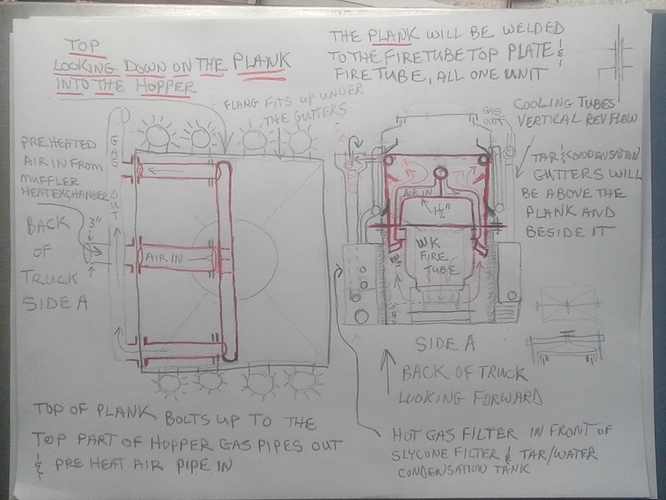 TOP
LOOKING DOWN ON THE PLANK
INTO THE HOPPER
THE PLANK WILL BE WELDED
TO THE FIRETUBE TOP PLATE &
FIRE TUBE, ALL ONE UNIT
FLANG FITS UP UNDER
THE GUTTERS
GAS OUT
PREHEATED
AIR IN FROM
MUFFLER
HEAT EXCHANGER
3"
BACK
OF
TRUCK
SIDE A
AIR IN
GAS
OUT
COOLING TUBES
VERTICAL REV FLOW
TAR & CONDENSATION
GUTTERS WILL
BE ABOVE THE
PLANK AND
BESIDE IT
AIR IN
1½"
WK
FIRE
TUBE
SIDE A
BACK OF TRUCK
LOOKING FORWARD
TOP OF PLANK BOLTS UP TO THE
TOP PART OF HOPPER GAS PIPES OUT
& PRE HEAT AIR PIPE IN
HOT GAS FILTER IN FRONT OF
SLYCONE FILTER & TAR/WATER
CONDENSATION TANK